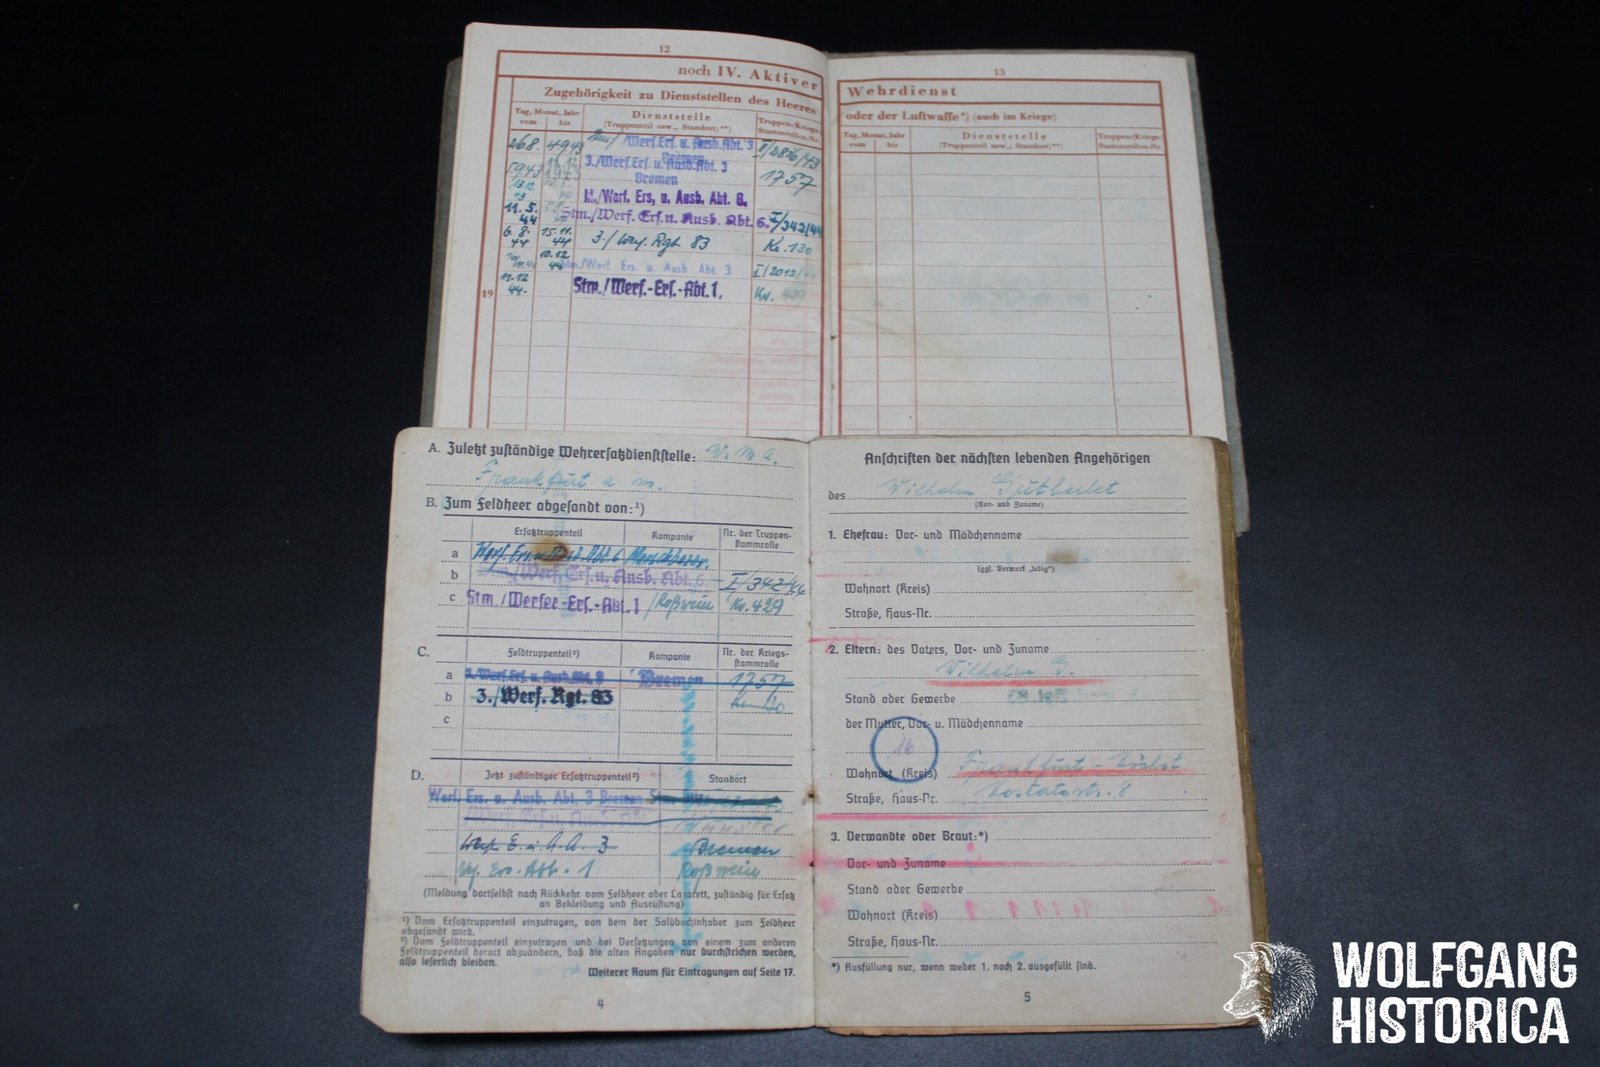 12
noch IV. Aktiver
Zugehörigkeit zu Dienststellen des Heeres
Tag, Monat, Jahr
vom bis
Dienststelle
(Truppenteil usw., Standort)**)
Truppen-(Kriegs-)
Stammrollen-Nr.
26.8. 4.9.43 /Werf.Ers.u. Ausb.Abt. 3 II/2816/43
Bremen
5.9.43 3./Werf.Ers.u. Ausb.Abt. 3 1757
Bremen
/Werf. Ers. u. Ausb. Abt. 6.
11.5. Stm./Werf. Ers. u. Ausb. Abt. 6. I/342/44
44
6.8. 15.11. 3./Werf. Rgt. 83 Kr. 130
44 44
10.12. Stm./Werf. Ers. u. Ausb. Abt. 3 I/2012/
44
11.12 Stm./Werf.-Ers.-Abt. 1, Kr. 429
44.
19
13
Wehrdienst
oder der Luftwaffe*) (auch im Kriege)
Tag, Monat, Jahr
vom bis
Dienststelle
(Truppenteil usw., Standort)**)
Truppen-(Kriegs-)
Stammrollen-Nr.
A. Zuletzt zuständige Wehrersatzdienststelle: W. M. A.
Frankfurt a m.
B. Zum Feldheer abgesandt von:¹)
Ersatztruppenteil Kompanie Nr. der Truppen-
stammrolle
a Werf. Abt. 6
b Stm./Werf. Ers. u. Ausb. Abt. 6. I/342/44
c Stm./Werfer-Ers.-Abt. 1 /Roßwein Kr. 429
C. Feldtruppenteil²) Kompanie Nr. der Kriegs-
stammrolle
a 3./Werf. Ers. u. Ausb. Abt. 3 Bremen 1757
b 3./Werf. Rgt. 83
c
D. Jetzt zuständiger Ersatztruppenteil²) Standort
Werf. Ers. u. Ausb. Abt. 3 Bremen
Münster
Werf. E. u. A. A. 3 Bremen
Wf. Ers. Abt. 1 Roßwein
(Meldung dortselbst nach Rückkehr vom Feldheer oder Lazarett, zuständig für Ersatz
an Bekleidung und Ausrüstung)
¹) Vom Ersatztruppenteil einzutragen, von dem der Soldbuchinhaber zum Feldheer
abgesandt wird.
²) Vom Feldtruppenteil einzutragen und bei Versetzungen von einem zum anderen
Feldtruppenteil derart abzuändern, daß die alten Angaben nur durchstrichen werden,
also leserlich bleiben.
Weiterer Raum für Eintragungen auf Seite 17.
4
Anschriften der nächsten lebenden Angehörigen
des Wilhelm Gutberlet
(Vor- und Zuname)
1. Ehefrau: Vor- und Mädchenname
(ggf. Vermerk „ledig")
Wohnort (Kreis)
Straße, Haus-Nr.
2. Eltern: des Vaters, Vor- und Zuname
Wilhelm G.
Stand oder Gewerbe
der Mutter, Vor- u. Mädchenname
16
Wohnort (Kreis) Frankfurt-Höchst
Straße, Haus-Nr. 8
3. Verwandte oder Braut:*)
Vor- und Zuname
Stand oder Gewerbe
Wohnort (Kreis)
Straße, Haus-Nr.
*) Ausfüllung nur, wenn weder 1. noch 2. ausgefüllt sind.
5
WOLFGANG
HISTORICA